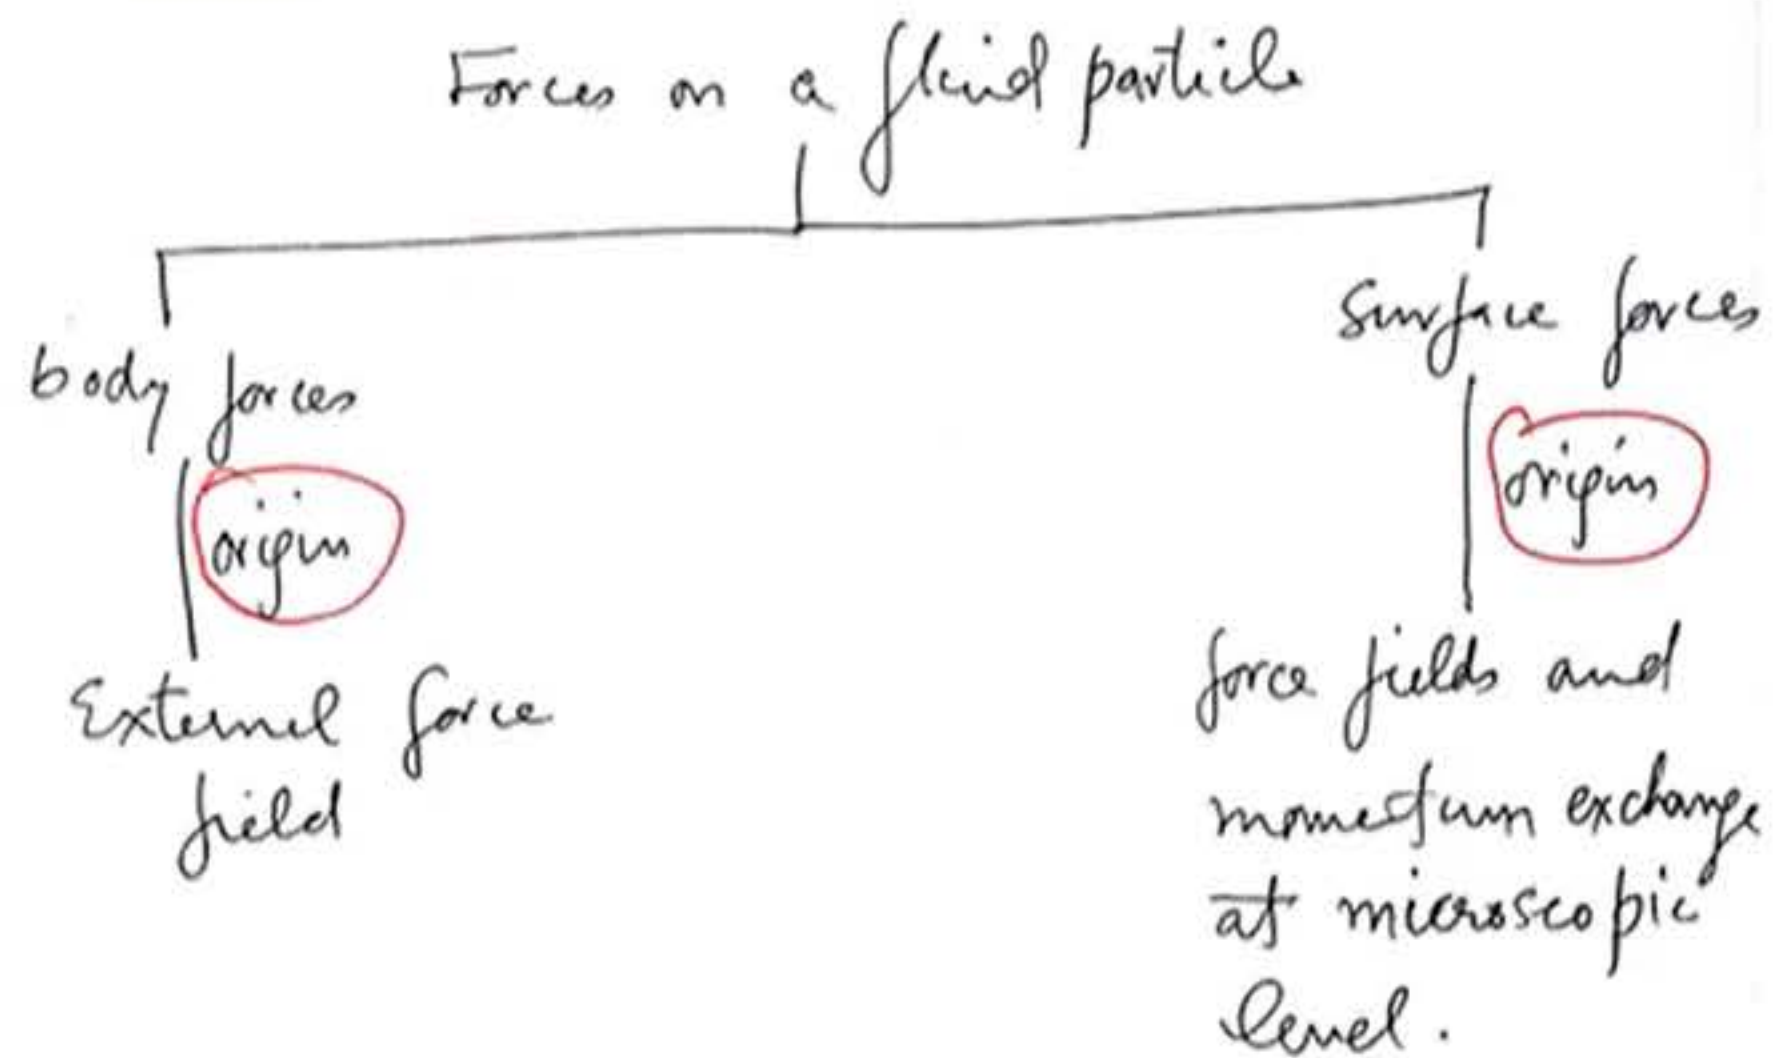 Forces on a fluid particle
body forces
origin
External force
field
Surface forces
origin
force fields and
momentum exchange
at microscopic
level.